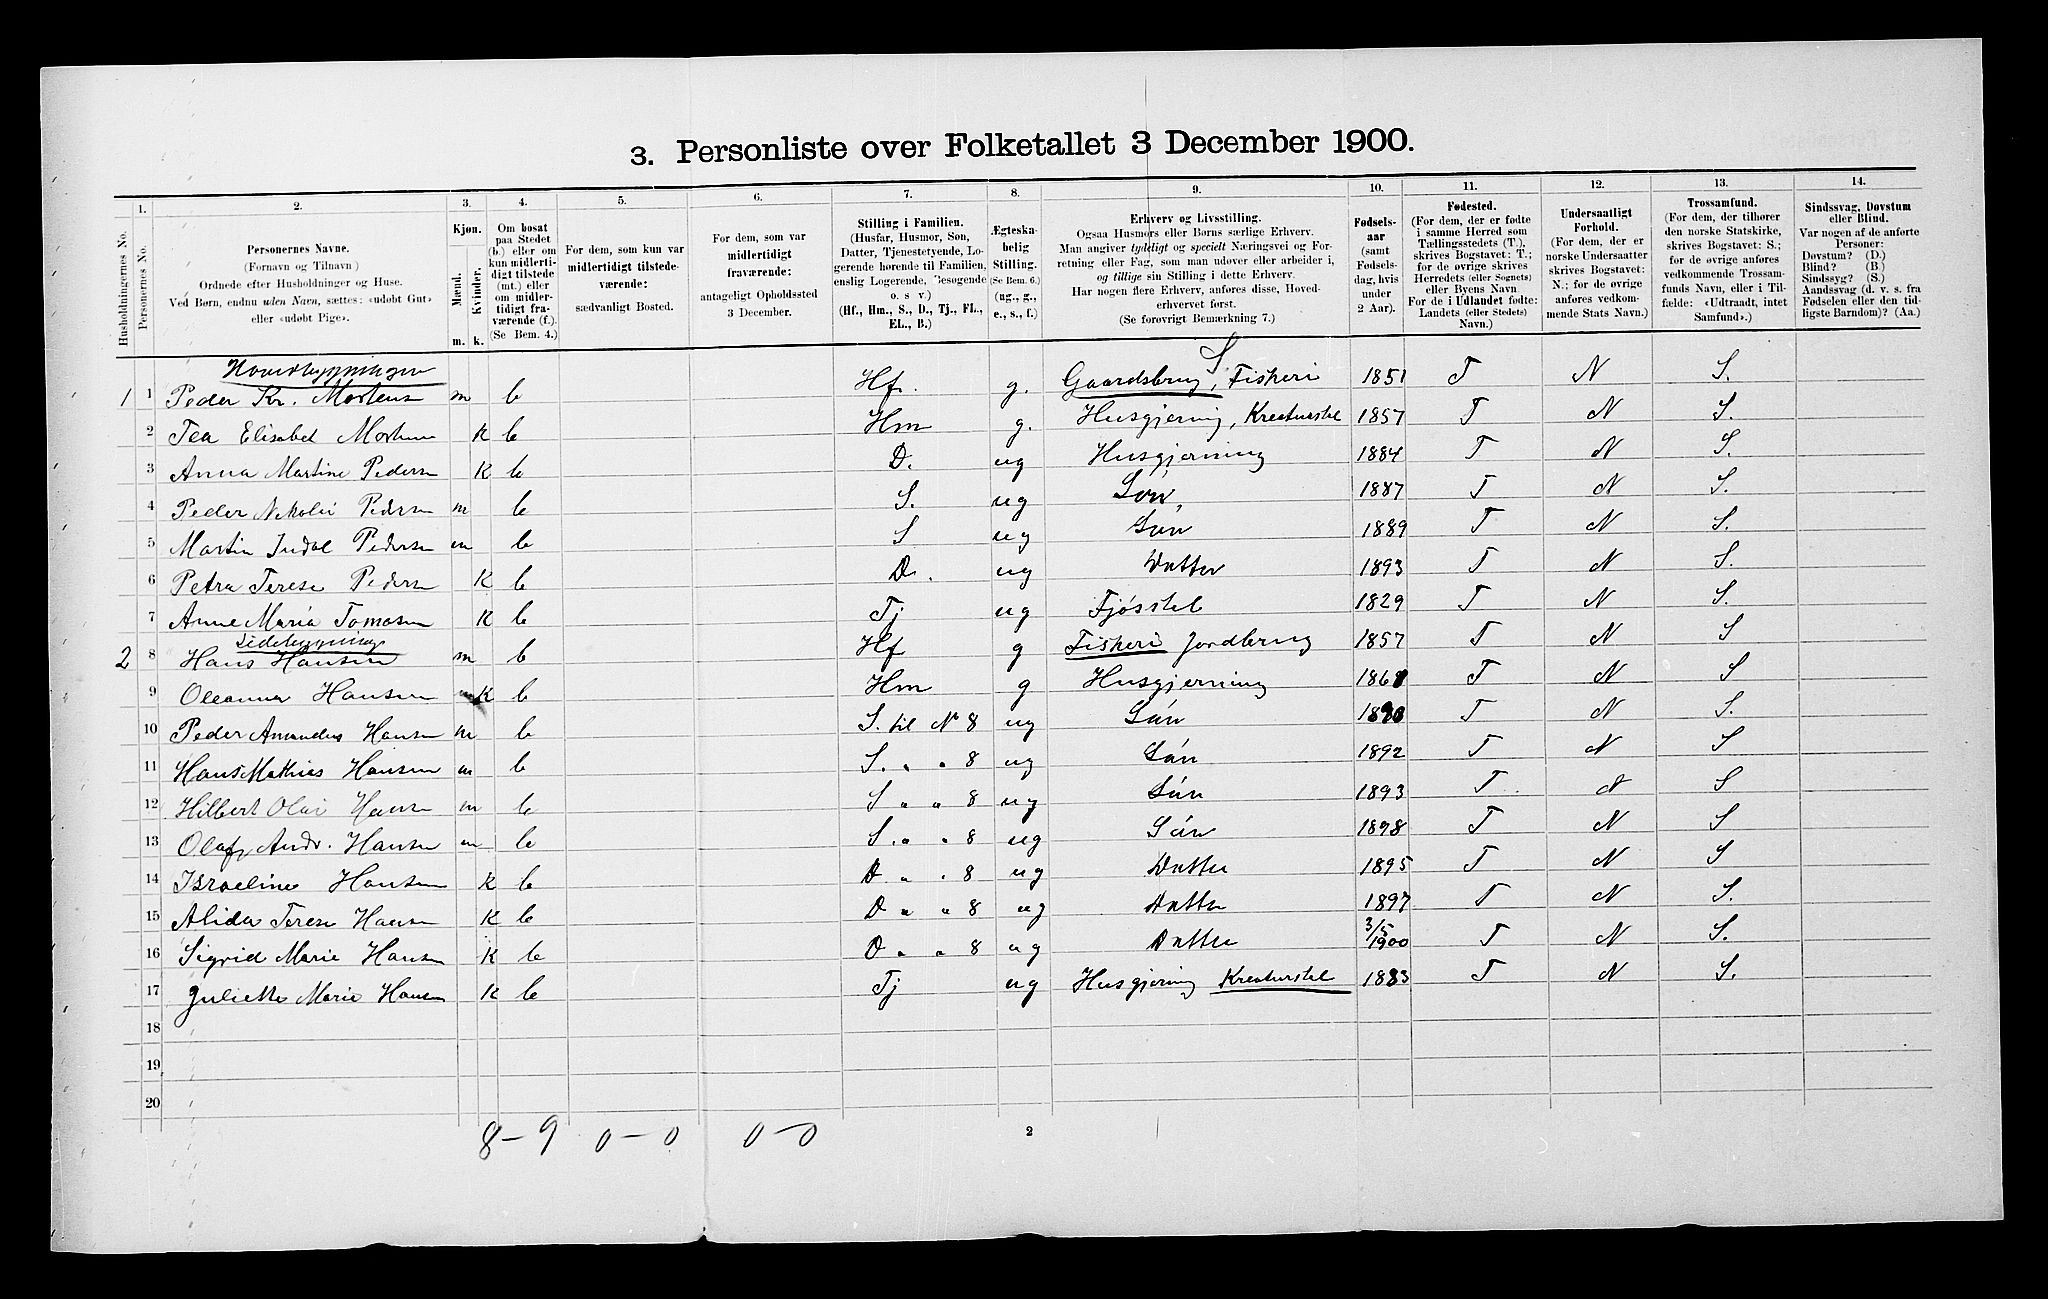 3. Personliste over Folketallet 3 December 1900.
1. 2. 3. 4. 5. 6. 7. 8. 9. 10. 11. 12. 13. 14.
Husholdningernes No.
Personernes No.
Personernes Navne.
(Fornavn og Tilnavn)
Ordnede efter Husholdninger og Huse.
Ved Børn, endnu uden Navn, sættes: «udøbt Gut»
eller «udøbt Pige».
Kjøn.
Mænd.
Kvinder.
m. k.
Om bosat
paa Stedet
(b.) eller om
kun midlerti-
digt tilstede
(mt.) eller
om midler-
tidigt fra-
værende (f.).
(Se Bem. 4.)
For dem, som kun var
midlertidigt tilstede-
værende:
sædvanligt Bosted.
For dem, som var
midlertidigt
fraværende:
antageligt Opholdssted
3 December.
Stilling i Familien.
(Husfar, Husmor, Søn,
Datter, Tjenestetyende, Lo-
gerende hørende til Familien,
enslig Logerende, Besøgende
o. s. v.)
(Hf., Hm., S., D., Tj., FL.,
EL., B.)
Ægteska-
belig
Stilling.
(Se Bem. 6.)
(ug., g.,
e., s., f.)
Erhverv og Livsstilling.
Ogsaa Husmors eller Børns særlige Erhverv.
Man angiver tydeligt og specielt Næringsvei og For-
retning eller Fag, som man udøver eller arbeider i,
og tillige sin Stilling i dette Erhverv.
Har nogen flere Erhverv, anføres disse, Hoved-
erhvervet først.
(Se forøvrigt Bemærkning 7.)
Fødsels-
aar
(samt
Fødsels-
dag, hvis
under
2 Aar).
Fødested.
(For dem, der er fødte
i samme Herred som
Tællingsstedets (T.),
skrives Bogstavet: T.;
for de øvrige skrives
Herredets (eller Sognets)
eller Byens Navn.
For de i Udlandet fødte:
Landets (eller Stedets)
Navn.)
Undersaatligt
Forhold.
(For dem, der er
norske Undersaatter
skrives Bogstavet:
N.; for de øvrige
anføres vedkom-
mende Stats Navn.)
Trossamfund.
(For dem, der tilhører
den norske Statskirke,
skrives Bogstavet: S.;
for de øvrige anføres
vedkommende Trossam-
funds Navn, eller i Til-
fælde: «Udtraadt, intet
Samfund».)
Sindssvag, Døvstum
eller Blind.
Var nogen af de anførte
Personer:
Døvstum? (D.)
Blind? (B.)
Sindssyg? (S.)
Aandssvag (d. v. s. fra
Fødselen eller den tid-
ligste Barndom)? (Aa.)
Hovedbygningen
S
1 1 Peder Kr. Mortens m b Hf. g. Gaardsbrug, Fiskeri 1851 T N S.
2 Tea Elisabet Mortens K b Hm g. Husgjerning, Kreaturstel 1857 T N S.
3 Anna Martine Pedersen K b D. ug Husgjerning 1884 T N S.
4 Peder Nikolai Pedersen m b S. ug Søn, 1887 T N S.
5 Martin Indal Pedersen m b S ug Søn 1889 T N S.
6 Petra Terese Pedersen K b D. ug Datter 1893 T N S.
7 Anne Maria Tomasen K b Tj ug Fjøsstel 1829 T N S.
Sidebygning
2 8 Hans Hansen m b Hf g Fiskeri Jordbrug 1857 T N S
9 Oleanna Hansen K b Hm g Husgjerning 1861 T N S
10 Peder Amandus Hansen m b S. til N 8 ug Søn 1890 T N S.
11 Hans Mathias Hansen m b S. " " 8 ug Søn 1892 T N S
12 Hilbert Olai Hansen m b S " " 8 ug Søn 1893 T N S
13 Olaf Andr. Hansen m b S. " " 8 ug Søn 1898 T N S
14 Israeline Hansen K b D " " 8 ug Datter 1895 T N S
15 Alida Terese Hansen K b D " " 8 ug Datter 1897 T N S.
16 Sigrid Marie Hansen K b D " " 8 ug Datter 3/5 1900 T N S.
17 Juliette Marie Hansen K b Tj ug Husgjerning Kreaturstel 1883 T N S.
18
19
20
8 - 9 0 - 0 0 - 0
2